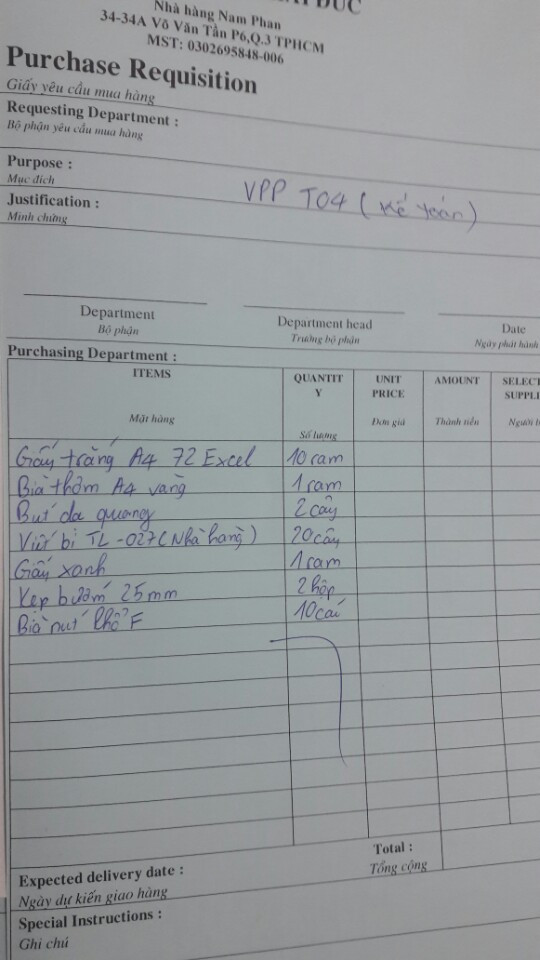 ĐỨC
Nhà hàng Nam Phan
34-34A Võ Văn Tần P6,Q.3 TPHCM
MST: 0302695848-006
Purchase Requisition
Giấy yêu cầu mua hàng
Requesting Department :
Bộ phận yêu cầu mua hàng
Purpose :
Mục đích
VPP T04 ( Kế toán )
Justification :
Minh chứng
Department Department head Date
Bộ phận Trưởng bộ phận Ngày phát hành
Purchasing Department :
ITEMS QUANTIT UNIT AMOUNT SELECT
Y PRICE SUPPLI
Mặt hàng Số lượng Đơn giá Thành tiền Người
Giấy trắng A4 72 Excel 10 ram
Bìa thơm A4 vàng 1 ram
Bút dạ quang 2 cây
Viết bi TL-027 (Nhà hàng) 20 cây
Giấy xanh 1 ram
Kẹp bướm 25mm 2 hộp
Bìa nút khổ F 10 cái
Total :
Tổng cộng
Expected delivery date :
Ngày dự kiến giao hàng
Special Instructions :
Ghi chú